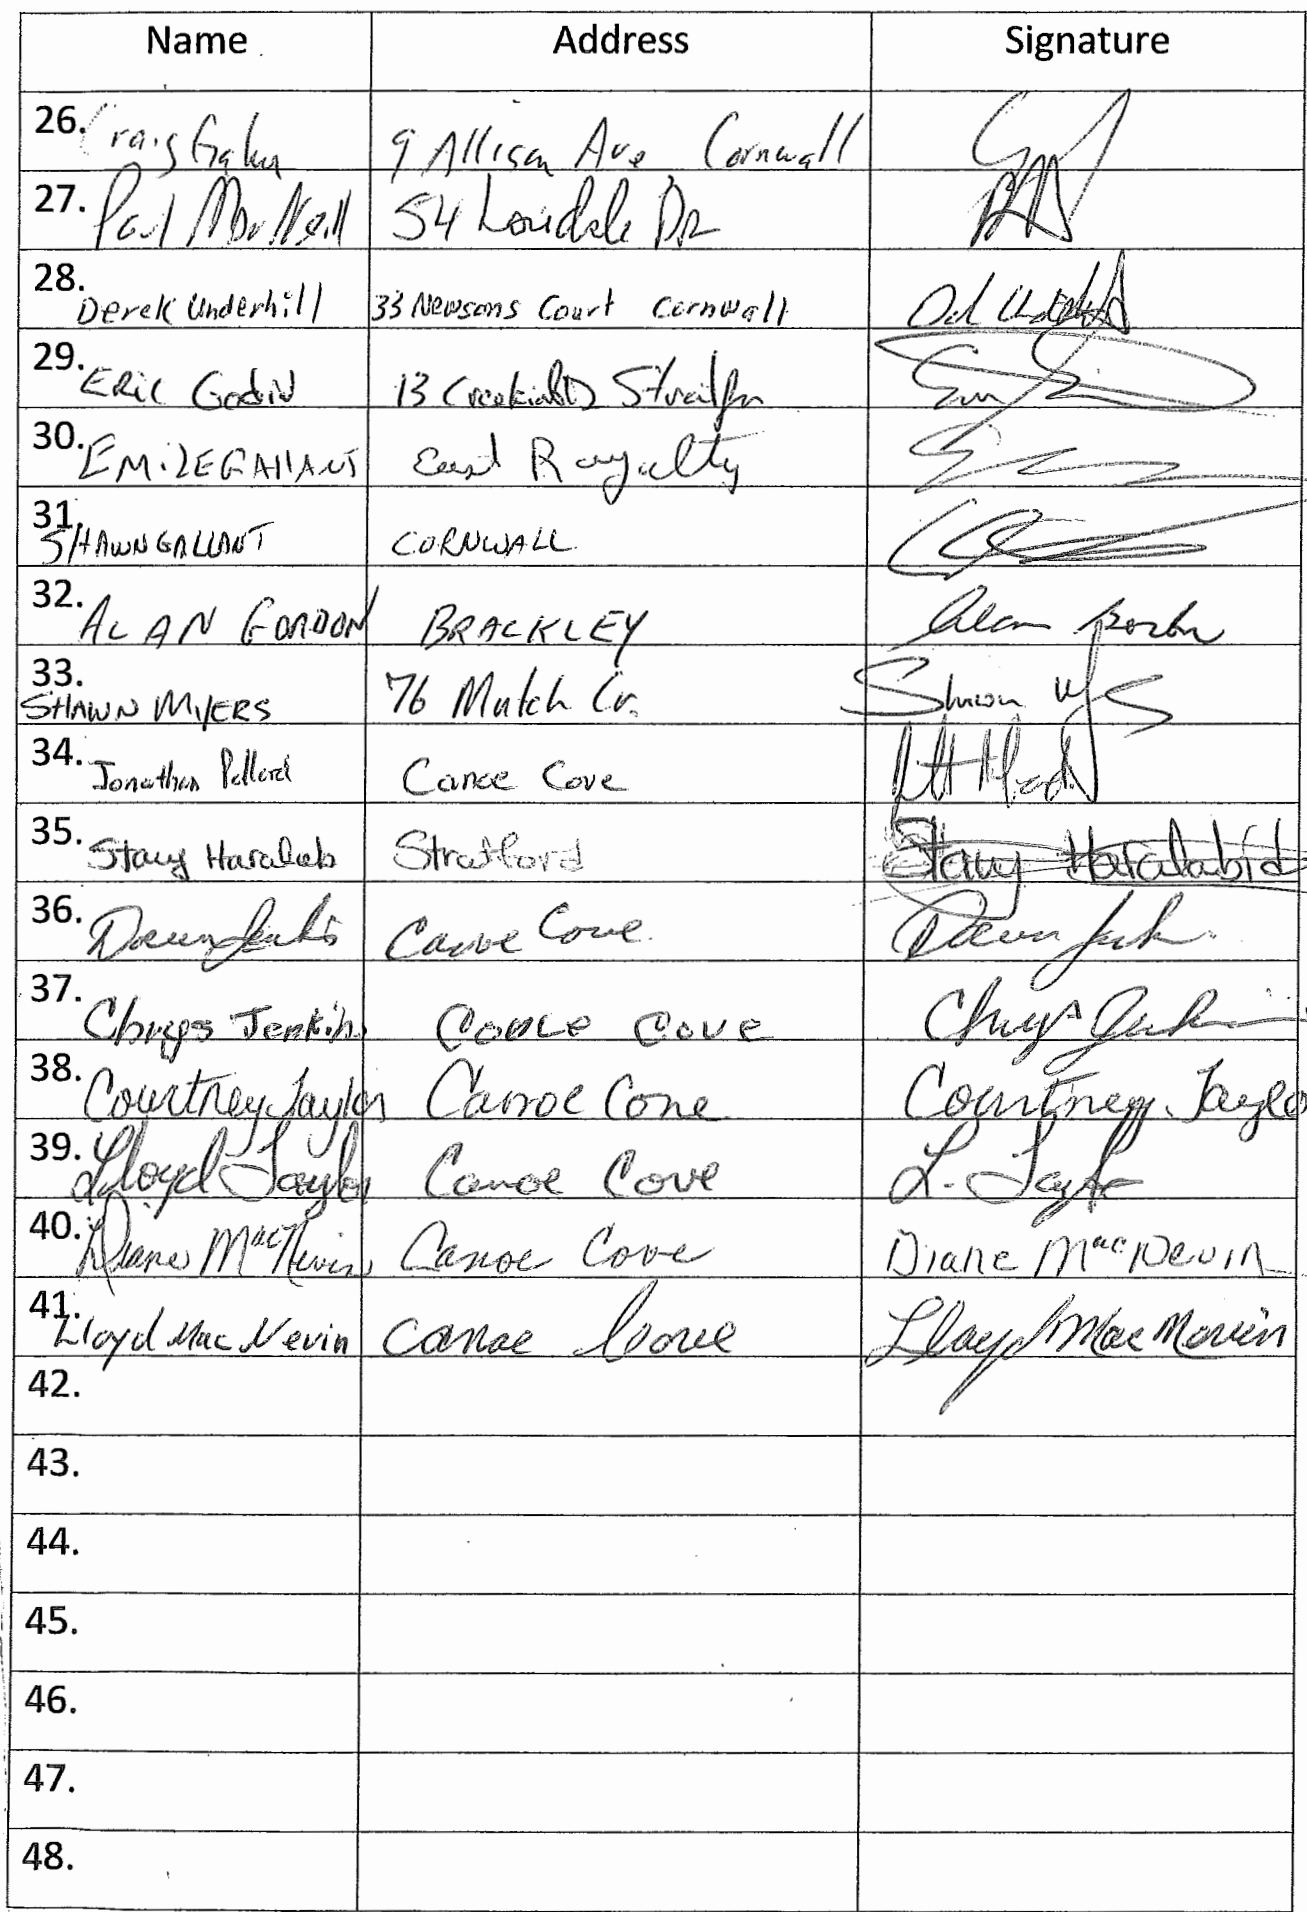 Name Address Signature
26. Craig 9 Allison Ave Cornwall
27. Paul MacNeill 54 Lonsdale DR
28. Derek Underhill 33 Newsons Court Cornwall
29. ERIC Godin 13
30. EMILE GALLANT East Royalty
31. SHAWN GALLANT CORNWALL
32. ALAN GORDON BRACKLEY Alan Gordon
33. SHAWN MYERS 76 Mutch Cr. Shawn
34. Jonathan Pollard Canoe Cove
35. Stacy Haralab Stratford Stacy Haralabid
36. Canoe Cove
37. Chrys Jenkins Canoe Cove Chrys
38. Courtney Taylor Canoe Cove Courtney Taylor
39. Lloyd Taylor Canoe Cove L. Taylor
40. Diane MacNevin Canoe Cove Diane MacNevin
41. Lloyd MacNevin Canoe Cove Lloyd MacNevin
42.
43.
44.
45.
46.
47.
48.